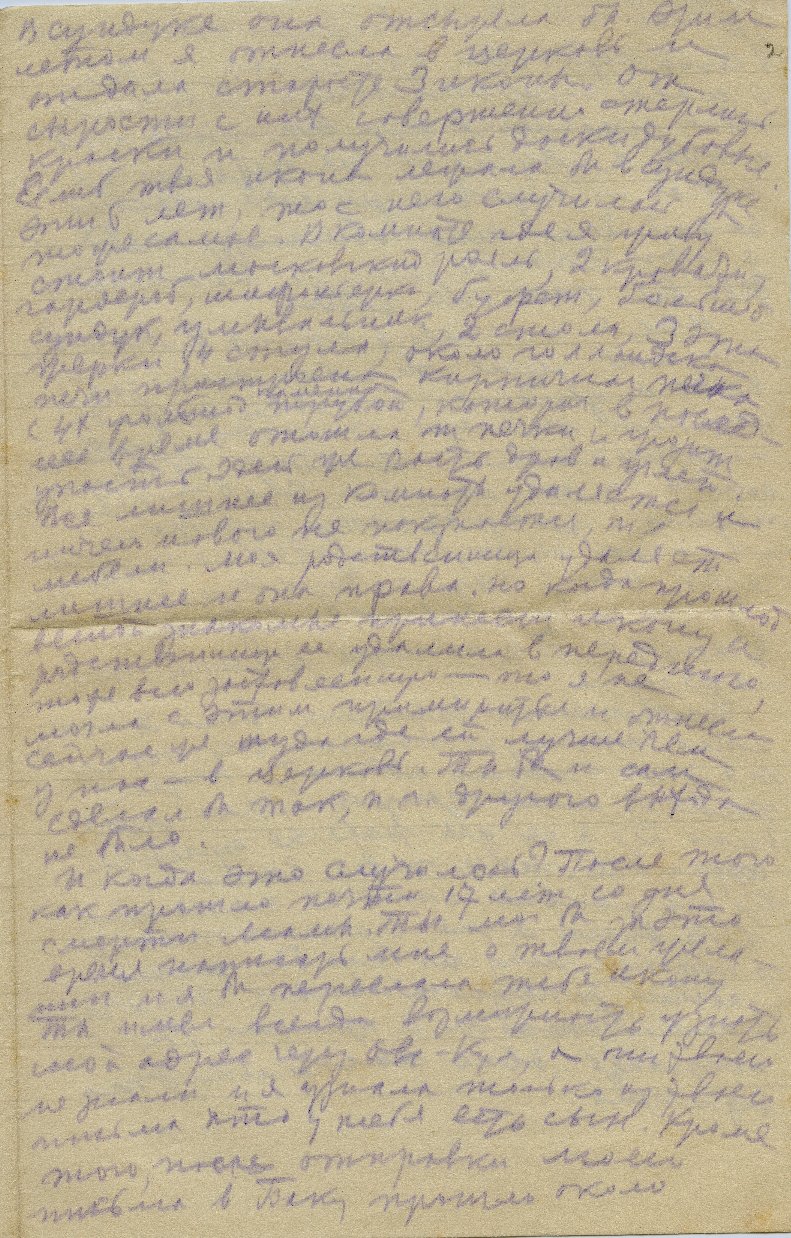 в сундуке она отсырела бы. Этим
летом я отнесла в церковь и
отдала старосте 3 иконы. От
сырости с них совершенно стерлись
краски и получились доски дубовые.
Если б твоя икона лежала бы в сундуке
эти 6 лет, то с него случилось
то же самое. В комнате где я живу
стоит московский рояль, 2 кровати,
гардероб, шифоньерка, буфет, большой
сундук, умывальник, 2 стола, 3 эта
жерки, 4 стула, около голландской
печи пристроена кирпичная печка
с 4х железной трубой, которая в послед-
нее время отошла от печки и грозит
упасть. Здесь же часть дров и углей.
Все лишнее из комнаты удаляется и
ничего нового не покупается, т.
мебели. Моя родственница удаляет
лишнее и она права. Но когда прошлой
весной знакомые принесли икону и
родственница ее удалила в переднюю,
то я не
могла с этим примириться и отнесла
сейчас же туда где ей лучше чем
у нас — в церковь. Ты бы и сам
сделал бы так, т.к. другого выхода
не было.
И когда это случилось? После того
как прошло почти 17 лет со дня
смерти мамы. Ты мог бы за это
время написать мне о твоем жела-
нии и я бы переслала тебе икону
Ты имел всегда возможность узнать
мой адрес через а они твоего
не знали и я узнала только из твоего
письма что у тебя есть сын. Кроме
того, после отправки моего
письма в Баку прошло около